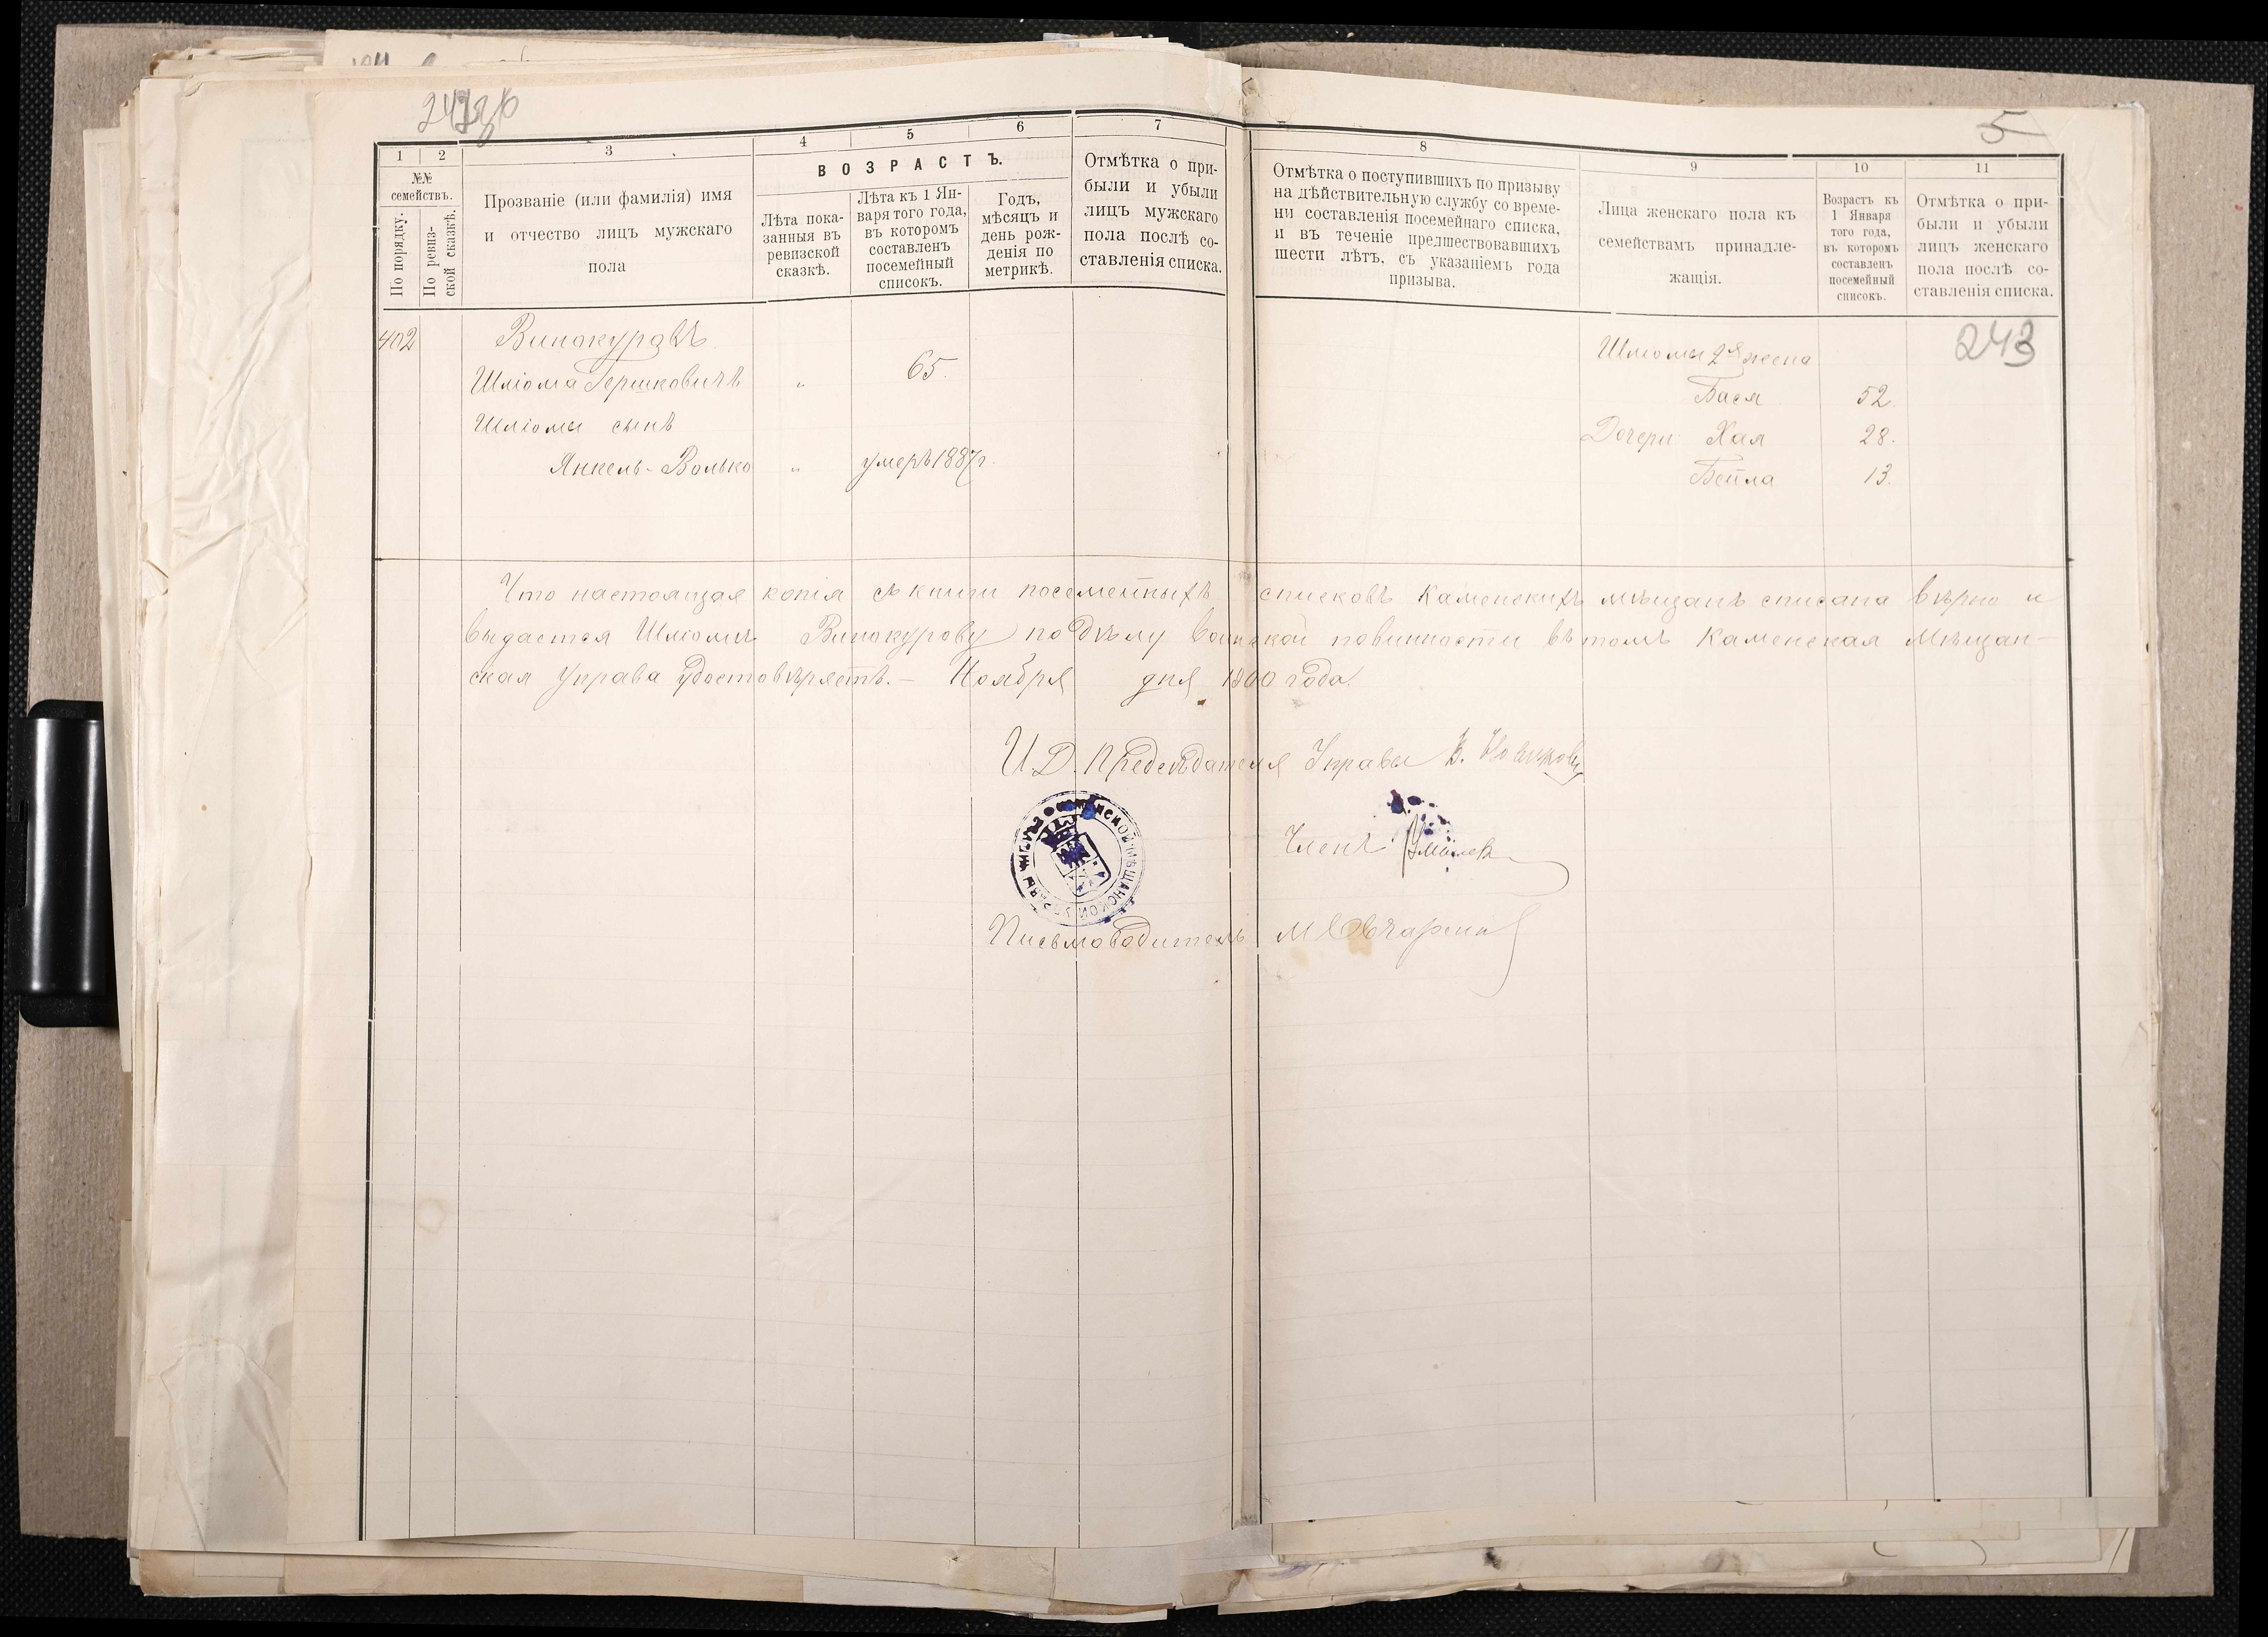 5
1
2
3
4
5
6
7
8
9
10
11
№№ семействъ.
По порядку.
По ревиз-
ской сказкѣ.
Прозваніе (или фамилія) имя
и отчество лицъ мужскаго
пола
ВОЗРАСТЪ.
Лѣта пока-
занныя въ
ревизской
сказкѣ.
Лѣта къ 1 Ян-
варя того года,
въ которомъ
составленъ
посемейный
списокъ.
Годъ,
мѣсяцъ и
день рож-
денія по
метрикѣ.
Отмѣтка о при-
были и убыли
лицъ мужскаго
пола послѣ со-
ставленія списка.
Отмѣтка о поступившихъ по призыву
на дѣйствительную службу со време-
ни составленія посемейнаго списка,
и въ теченіе предшествовавшихъ
шести лѣтъ, съ указаніемъ года
призыва.
Лица женскаго пола къ
семействамъ принадле-
жащія.
Возрастъ къ
1 Января
того года,
въ которомъ
составленъ
посемейный
списокъ.
Отмѣтка о при-
были и убыли
лицъ женскаго
пола послѣ со-
ставленія списка.
402
Винокуровъ
Шліома Гершковичъ " 65.
Шліомы сынъ
Янкель-Волько " умеръ 1887г.
Шліомы 2я жена
Бася 52.
Дочери Хая 28.
Бейла 13.
243
Что настоящая копія съ книги посемейныхъ списковъ Каменскихъ мѣщанъ списана вѣрно и
выдается Шліомѣ Винокурову по дѣлу воинской повинности въ томъ Каменская Мѣщан-
ская Управа удостовѣряетъ.- Ноября дня 1900 года.
И.Д. Предсѣдателя Управы
Членъ
Письмоводитель М Овчаренко